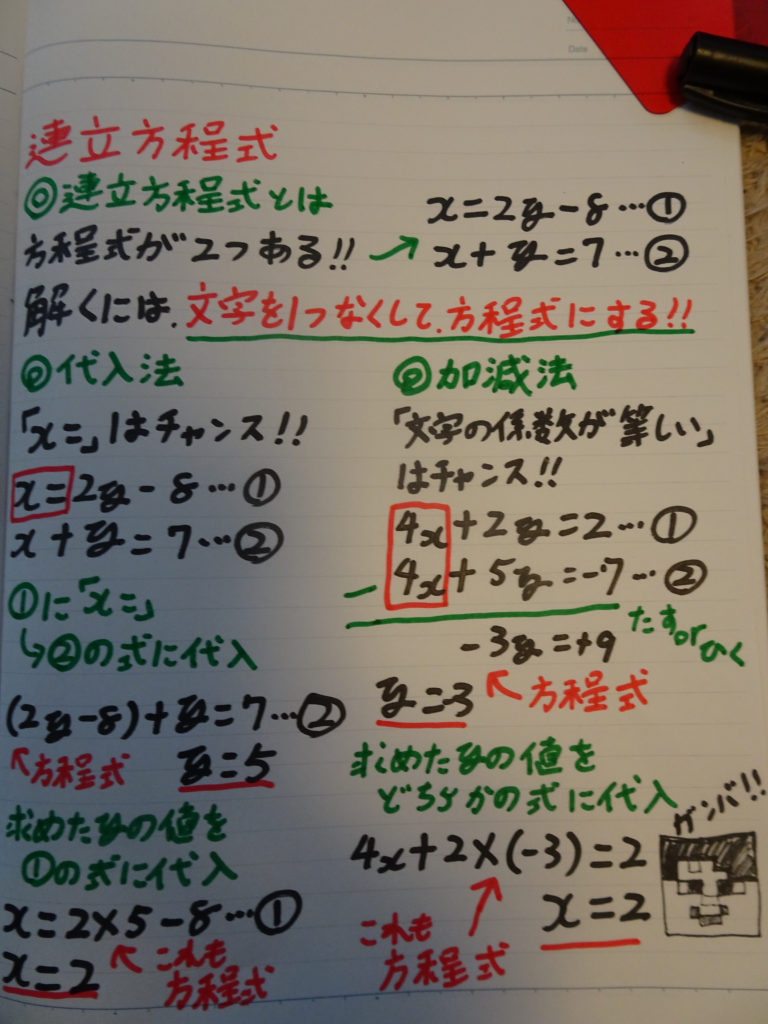 No.
Date
連立方程式
◎連立方程式とは
方程式が2つある!!
x=2y-8…①
x+y=7…②
解くには、文字を1つなくして、方程式にする!!
◎代入法
「x=」はチャンス!!
x=2y-8…①
x+y=7…②
①に「x=」
↳②の式に代入
(2y-8)+y=7…②
↖方程式 y=5
求めたyの値を
①の式に代入
x=2×5-8…①
x=2 ↖これも
方程式
◎加減法
「文字の係数が等しい」
はチャンス!!
4x+2y=2…①
4x+5y=-7…②
たすorひく
-3y=+9
y=-3 ↖方程式
求めたyの値を
どちらかの式に代入
ガンバ!!
4x+2×(-3)=2
x=2
これも
方程式